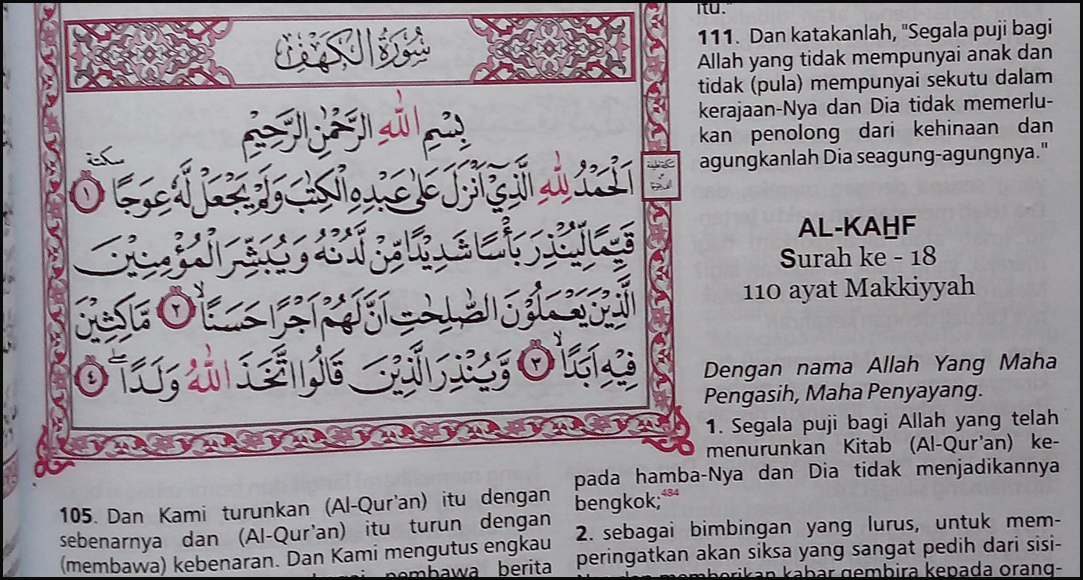 سُوْرَةُ الْكَهْفِ
بِسْمِ اللّٰهِ الرَّحْمٰنِ الرَّحِيْمِ
اَلْحَمْدُ لِلّٰهِ الَّذِيْٓ اَنْزَلَ عَلٰى عَبْدِهِ الْكِتٰبَ وَلَمْ يَجْعَلْ لَّهٗ عِوَجًا ۜ ١
قَيِّمًا لِّيُنْذِرَ بَأْسًا شَدِيْدًا مِّنْ لَّدُنْهُ وَيُبَشِّرَ الْمُؤْمِنِيْنَ
الَّذِيْنَ يَعْمَلُوْنَ الصّٰلِحٰتِ اَنَّ لَهُمْ اَجْرًا حَسَنًاۙ ٢ مَّاكِثِيْنَ
فِيْهِ اَبَدًاۙ ٣ وَّيُنْذِرَ الَّذِيْنَ قَالُوا اتَّخَذَ اللّٰهُ وَلَدًاۖ ٤
105. Dan Kami turunkan (Al-Qur'an) itu dengan
sebenarnya dan (Al-Qur'an) itu turun dengan
(membawa) kebenaran. Dan Kami mengutus engkau
pembawa berita
itu."
111. Dan katakanlah, "Segala puji bagi
Allah yang tidak mempunyai anak dan
tidak (pula) mempunyai sekutu dalam
kerajaan-Nya dan Dia tidak memerlu-
kan penolong dari kehinaan dan
agungkanlah Dia seagung-agungnya."
AL-KAH̲F
Surah ke - 18
110 ayat Makkiyyah
Dengan nama Allah Yang Maha
Pengasih, Maha Penyayang.
1. Segala puji bagi Allah yang telah
menurunkan Kitab (Al-Qur'an) ke-
pada hamba-Nya dan Dia tidak menjadikannya
bengkok;⁴⁸⁴
2. sebagai bimbingan yang lurus, untuk mem-
peringatkan akan siksa yang sangat pedih dari sisi-
Nya dan memberikan kabar gembira kepada orang-